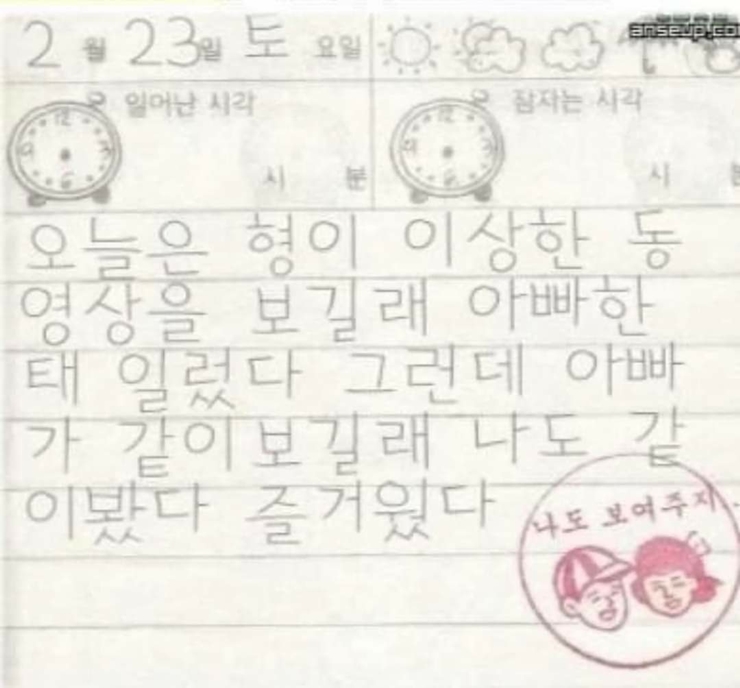 2월 23일 토요일
anseup.com
일어난 시각 잠자는 시각
시 분 시
오늘은 형이 이상한 동
영상을 보길래 아빠한
태 일렀다 그런데 아빠
가 같이보길래 나도 같
이봤다 즐거웠다
나도 보여주지..